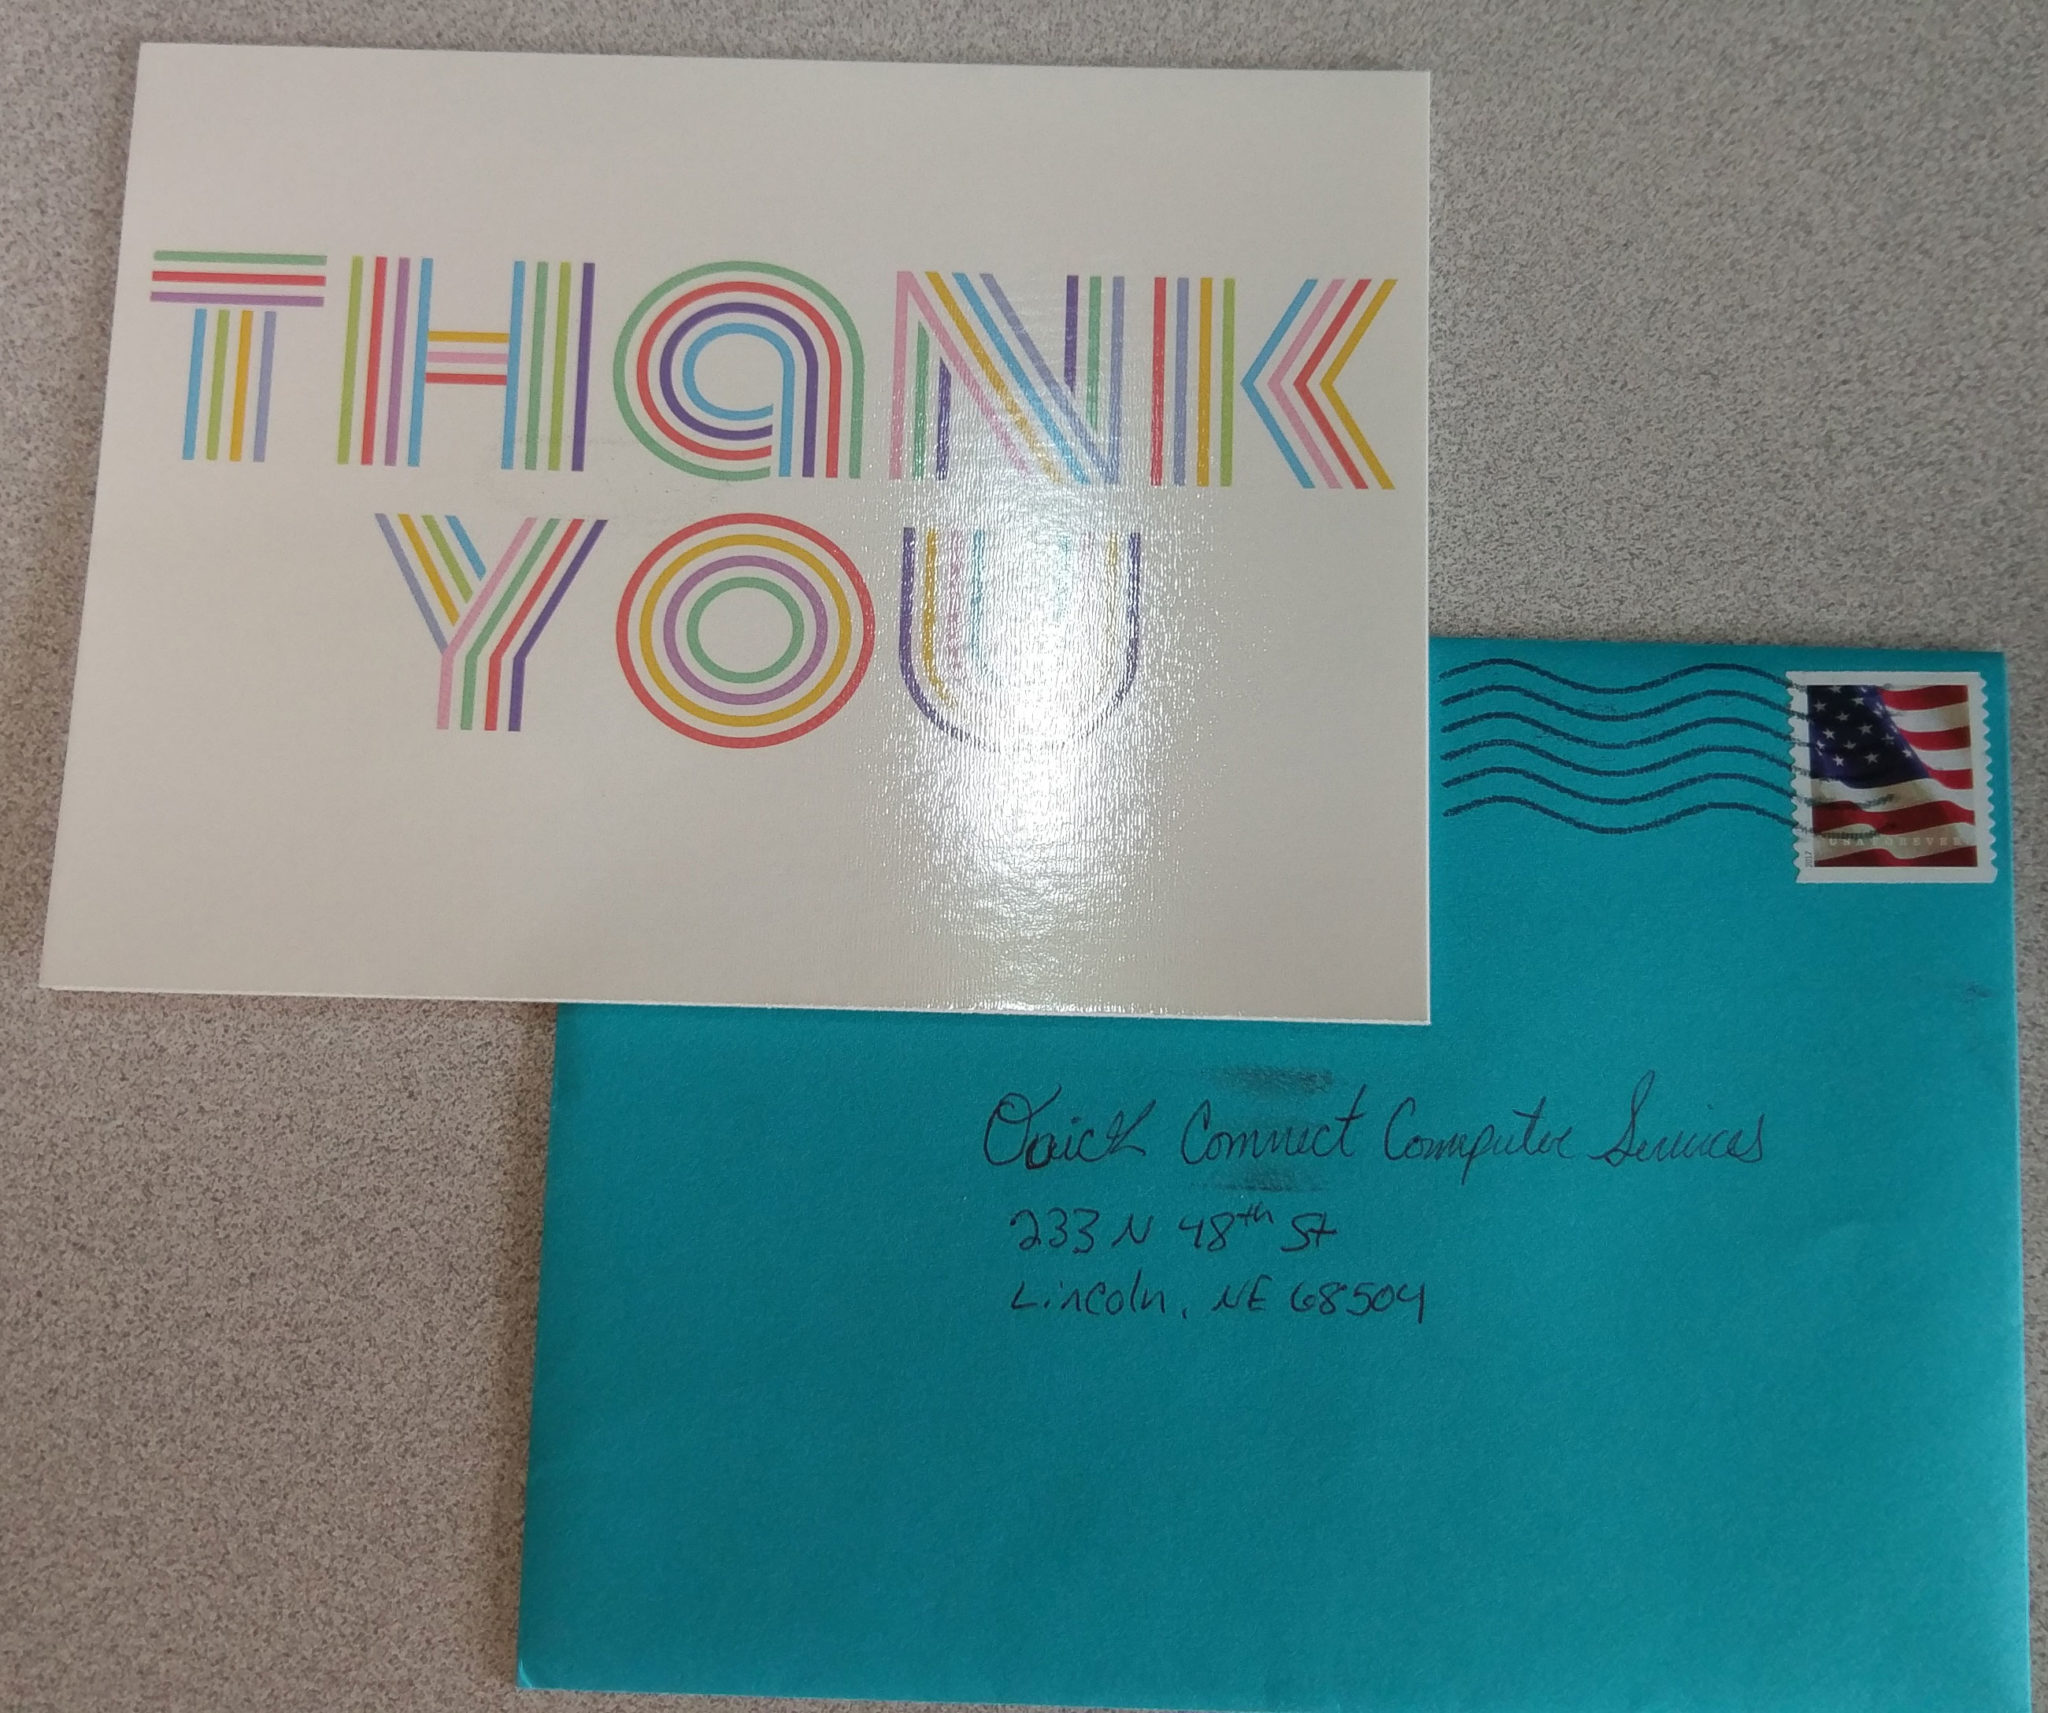 THaNK
YOU
USA FOREVER
2017
Quick Connect Computer Services
233 N 48th St
Lincoln, NE 68504